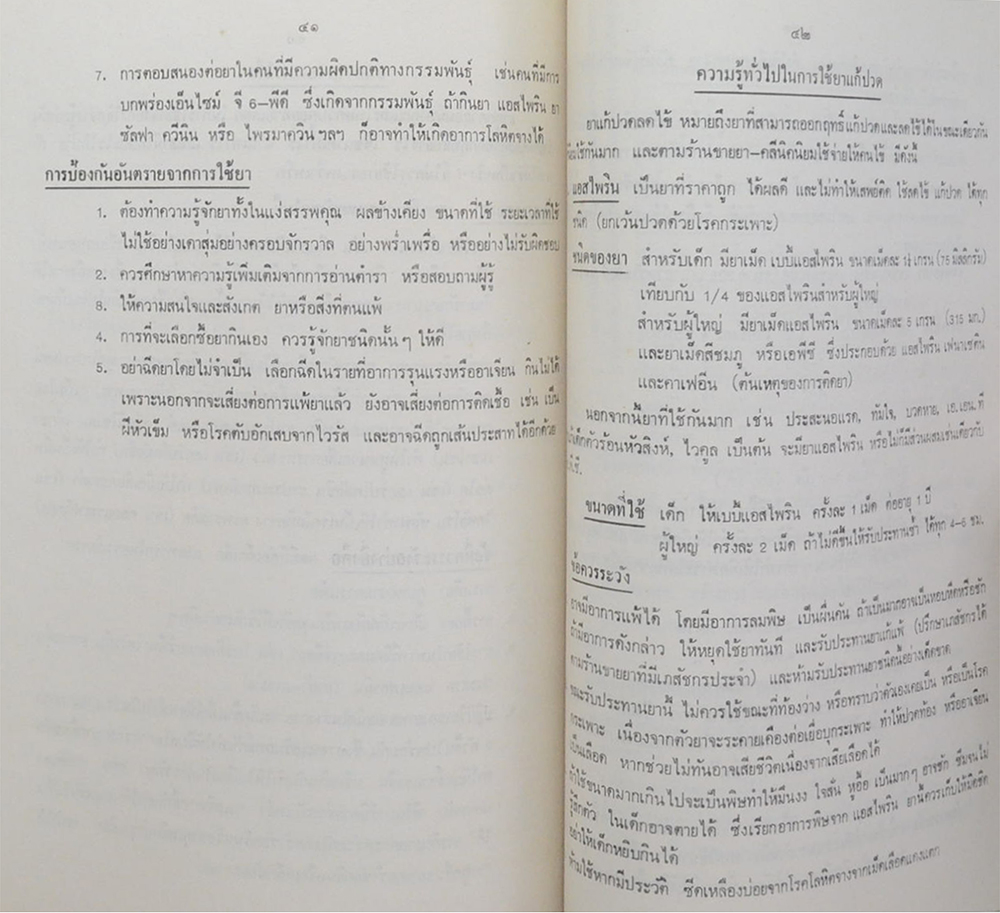 ๔๑
7. การตอบสนองต่อยาในคนที่มีความผิดปกติทางกรรมพันธุ์ เช่นคนที่มีการ
บกพร่องเอ็นไซม์ จี 6-พีดี ซึ่งเกิดจากกรรมพันธุ์ ถ้ากินยา แอสไพริน ยา
ซัลฟา ควีนิน หรือ ไพรมาควิน ฯลฯ ก็อาจทำให้เกิดอาการโลหิตจางได้
การป้องกันอันตรายจากการใช้ยา
1. ต้องทำความรู้จักยาทั้งในแง่สรรพคุณ ผลข้างเคียง ขนาดที่ใช้ ระยะเวลาที่ใช้
ไม่ใช้อย่างเดาสุ่มอย่างครอบจักรวาล อย่างพร่ำเพรื่อ หรืออย่างไม่รับผิดชอบ
2. ควรศึกษาหาความรู้เพิ่มเติมจากการอ่านตำรา หรือสอบถามผู้รู้
3. ให้ความสนใจและสังเกต ยาหรือสิ่งที่ตนแพ้
4. การที่จะเลือกซื้อยากินเอง ควรรู้จักยาชนิดนั้น ๆ ให้ดี
5. อย่าฉีดยาโดยไม่จำเป็น เลือกฉีดในรายที่อาการรุนแรงหรืออาเจียน กินไม่ได้
เพราะนอกจากจะเสี่ยงต่อการแพ้ยาแล้ว ยังอาจเสี่ยงต่อการติดเชื้อ เช่น เป็น
ฝีหัวเข็ม หรือโรคตับอักเสบจากไวรัส และอาจฉีดถูกเส้นประสาทได้อีกด้วย
๔๒
ความรู้ทั่วไปในการใช้ยาแก้ปวด
ยาแก้ปวดลดไข้ หมายถึงยาที่สามารถออกฤทธิ์แก้ปวดและลดไข้ได้ในขณะเดียวกัน
นิยมใช้กันมาก และตามร้านขายยา-คลีนิคนิยมใช้จ่ายให้คนไข้ มีดังนี้
แอสไพริน เป็นยาที่ราคาถูก ได้ผลดี และไม่ทำให้เสพย์ติด ใช้ลดไข้ แก้ปวด ได้ทุก
ชนิด (ยกเว้นปวดด้วยโรคกระเพาะ)
ชนิดของยา สำหรับเด็ก มียาเม็ด เบบี้แอสไพริน ขนาดเม็ดละ 1¼ เกรน (75 มิลลิกรัม)
เทียบกับ 1/4 ของแอสไพรินสำหรับผู้ใหญ่
สำหรับผู้ใหญ่ มียาเม็ดแอสไพริน ขนาดเม็ดละ 5 เกรน (315 มก.)
และยาเม็ดสีชมภู หรือเอพีซี ซึ่งประกอบด้วย แอสไพริน เฟนาเซติน
และคาเฟอีน (ต้นเหตุของการติดยา)
นอกจากนี้ยาที่ใช้กันมาก เช่น ประสะนอแรด, ทัมใจ, บวดหาย, เอ.เอน.ที
เด็กตัวร้อนหัวสิงห์, ไวคูล เป็นต้น จะมียาแอสไพริน หรือไม่ก็มีส่วนผสมเช่นเดียวกับ
ขนาดที่ใช้ เด็ก ให้เบบี้แอสไพริน ครั้งละ 1 เม็ด ต่ออายุ 1 ปี
ผู้ใหญ่ ครั้งละ 2 เม็ด ถ้าไม่ดีขึ้นให้รับประทานซ้ำ ได้ทุก 4-6 ชม.
ข้อควรระวัง
อาจมีอาการแพ้ได้ โดยมีอาการลมพิษ เป็นผื่นคัน ถ้าเป็นมากอาจเป็นหอบหืดหรือชัก
ถ้ามีอาการดังกล่าว ให้หยุดใช้ยาทันที และรับประทานยาแก้แพ้ (ปรึกษาเภสัชกรได้
ตามร้านขายยาที่มีเภสัชกรประจำ) และห้ามรับประทานยาชนิดนี้อย่างเด็ดขาด
ขณะรับประทานยานี้ ไม่ควรใช้ขณะที่ท้องว่าง หรือทราบว่าตัวเองเคยเป็น หรือเป็นโรค
กระเพาะ เนื่องจากตัวยาจะระคายเคืองต่อเยื่อบุกระเพาะ ทำให้ปวดท้อง หรืออาเจียน
เป็นเลือด หากช่วยไม่ทันอาจเสียชีวิตเนื่องจากเสียเลือดได้
ถ้าใช้ขนาดมากเกินไปจะเป็นพิษทำให้มึนงง ใจสั่น หูอื้อ เป็นมากๆ อาจชัก ซึมจนไม่
รู้สึกตัว ในเด็กอาจตายได้ ซึ่งเรียกอาการพิษจาก แอสไพริน ยานี้ควรเก็บให้มิดชิด
อย่าให้เด็กหยิบกินได้
ห้ามใช้หากมีประวัติ ซีดเหลืองบ่อยจากโรคโลหิตจางจากเม็ดเลือดแดงแตก